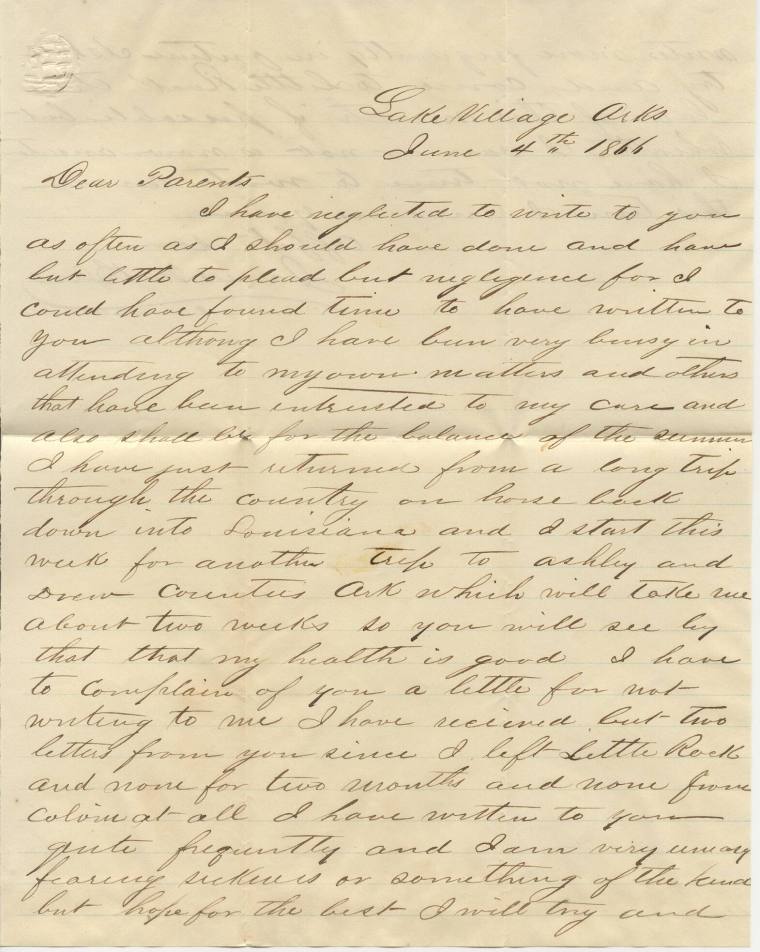 Lake Village Arks
June 4th 1866
Dear Parents
I have neglected to write to you
as often as I should have done and have
but little to plead but negligence for I
could have found time to have written to
you althong I have been very buisy in
attending to my own matters and others
that have been intrusted to my care and
also shall be for the balance of the summer
I have just returned from a long trip
through the country on horse back
down into Louisiana and I start this
week for another trip to ashley and
Drew Counties Ark which will take me
about two weeks so you will see by
that that my health is good I have
to complain of you a little for not
writing to me I have recieved but two
letters from you since I left Little Rock
and none for two months and none from
at all I have written to you
quite frequently and I am very uneasy
fearing sickness or something of the kind
but hope for the best I will try and